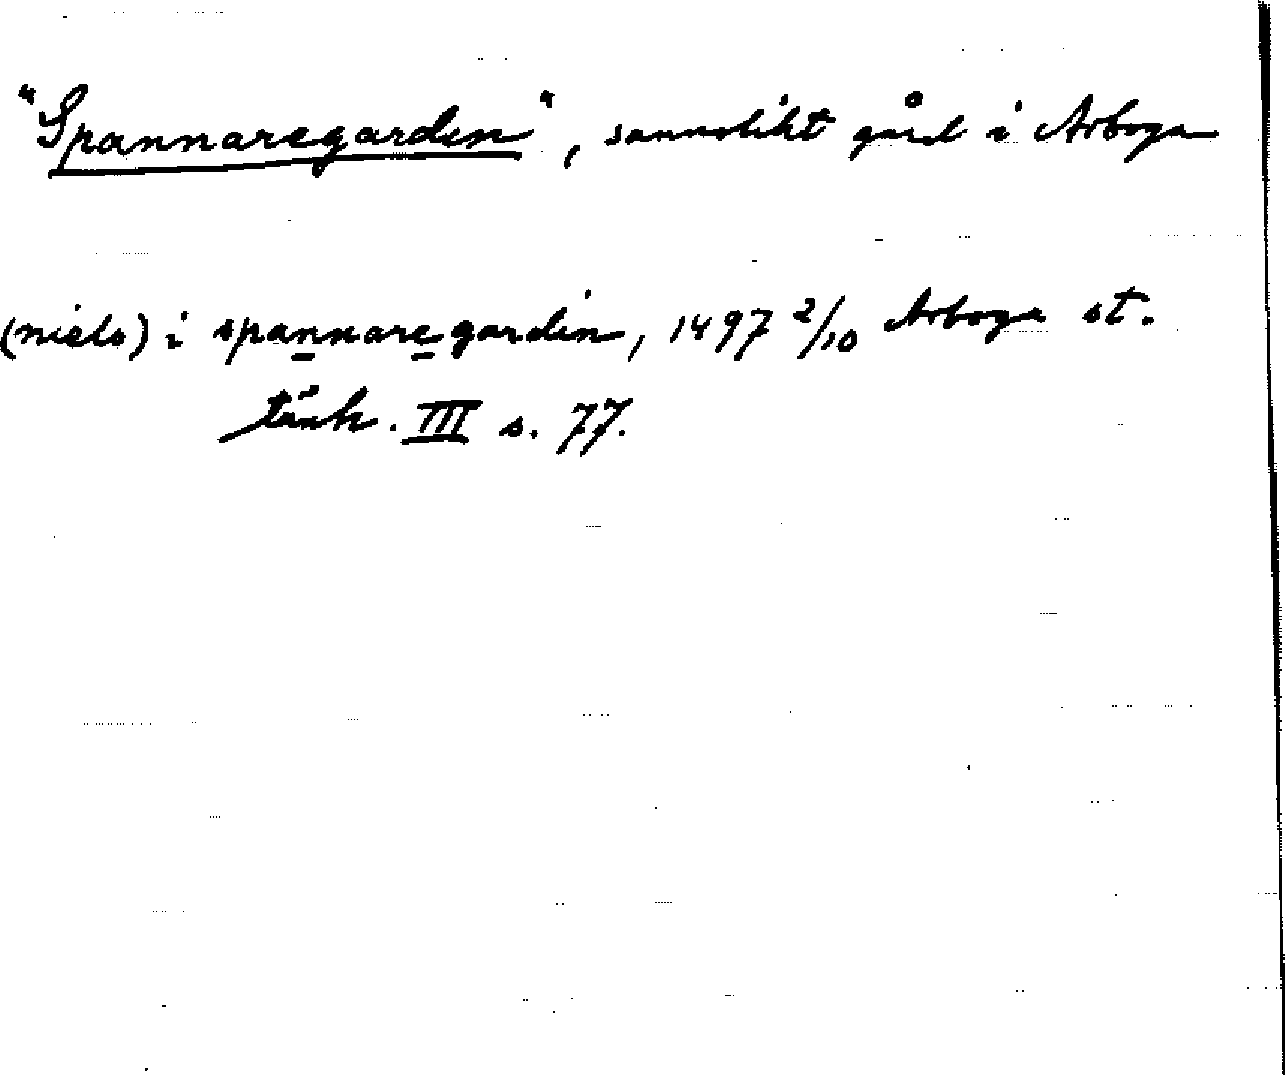 "Spannaregarden", sannolikt gård i Arboga
(niels) i spannaregardin, 1497 2/10 Arboga st.
tänk. III s. 77.